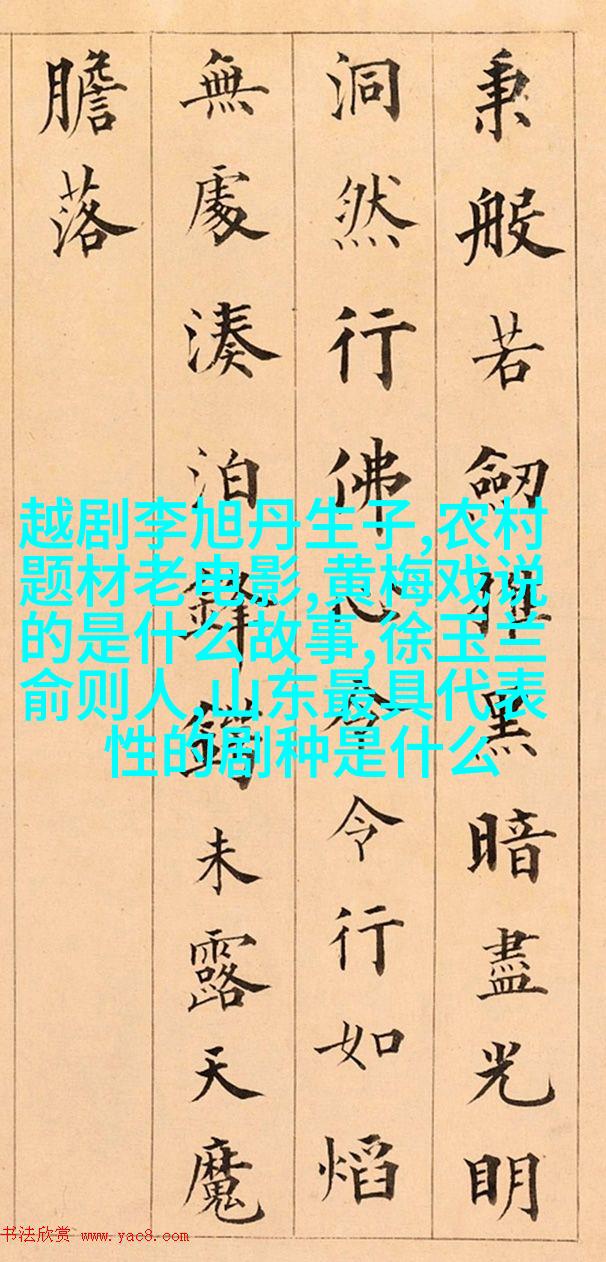 秉般若劒摧黑暗盡光明
洞然行佛心令行如熖
無處湊泊鋒鍔未露天魔
膽落
越剧李旭丹生子,农村
题材老电影,黄梅戏说
的是什么故事,徐玉兰
俞则人,山东最具代表
性的剧种是什么
书法欣赏 www.yac8.com